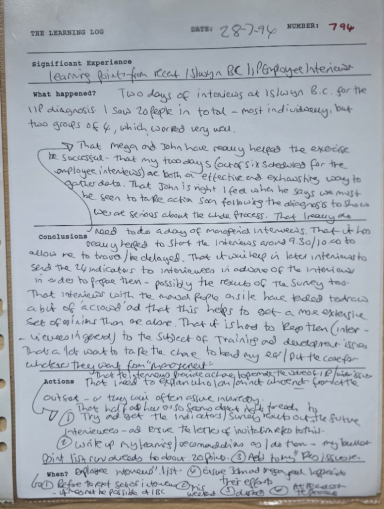 THE LEARNING LOG DATE: 28-7-94 NUMBER: 794
Significant Experience
learning points from recent Islwyn B.C. IIP Employee Interviews
What happened? Two days of interviews at Islwyn B.C. for the
IIP diagnosis I saw 20 people in total - most individually, but
two groups of 4, which worked very well.
That and John have really helped the exercise
be successful - that my two days (out of six scheduled for the
employee interviews) are both an effective and exhausting way to
gather data. That John is right I feel when he says we must
be seen to take action soon following the diagnosis to show
we are serious about the whole process. That I really do
Conclusions need to do a day of interviews. That it has
really helped to start the interviews around 9.30/10.00 to
allow me to travel/be delayed. That it will help in later interviews to
send the 24 indicators to interviewees in advance of the interviews
in order to prepare them - possibly the results of the survey too.
That interviews with the people on site have tended to draw
a bit of a crowd and that this helps to get a more extensive
set of opinions than one alone. That it is hard to keep them (inter-
-viewees in general) to the subject of Training and development issues
That a lot want to take the chance to bend my ear/put the case for
whatever they want from "management"
That the interviews provide a chance to
Actions That I need to explain who I am/am not from the
outset - or they can often assume
① Try and get the Indicators/Survey results out the future
interviewees - and
② Write up my learning/recommendations as I do them - my bullet
point list runs already to about 20 points. ③ Add to my
When? employee interviews' list. ④
① Before next set of interviews ② this their efforts
- if not be possible at IBC week